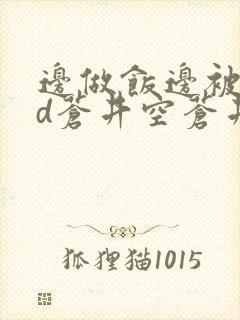 邊做飯邊被
d蒼井空蒼井
狐狸猫1015